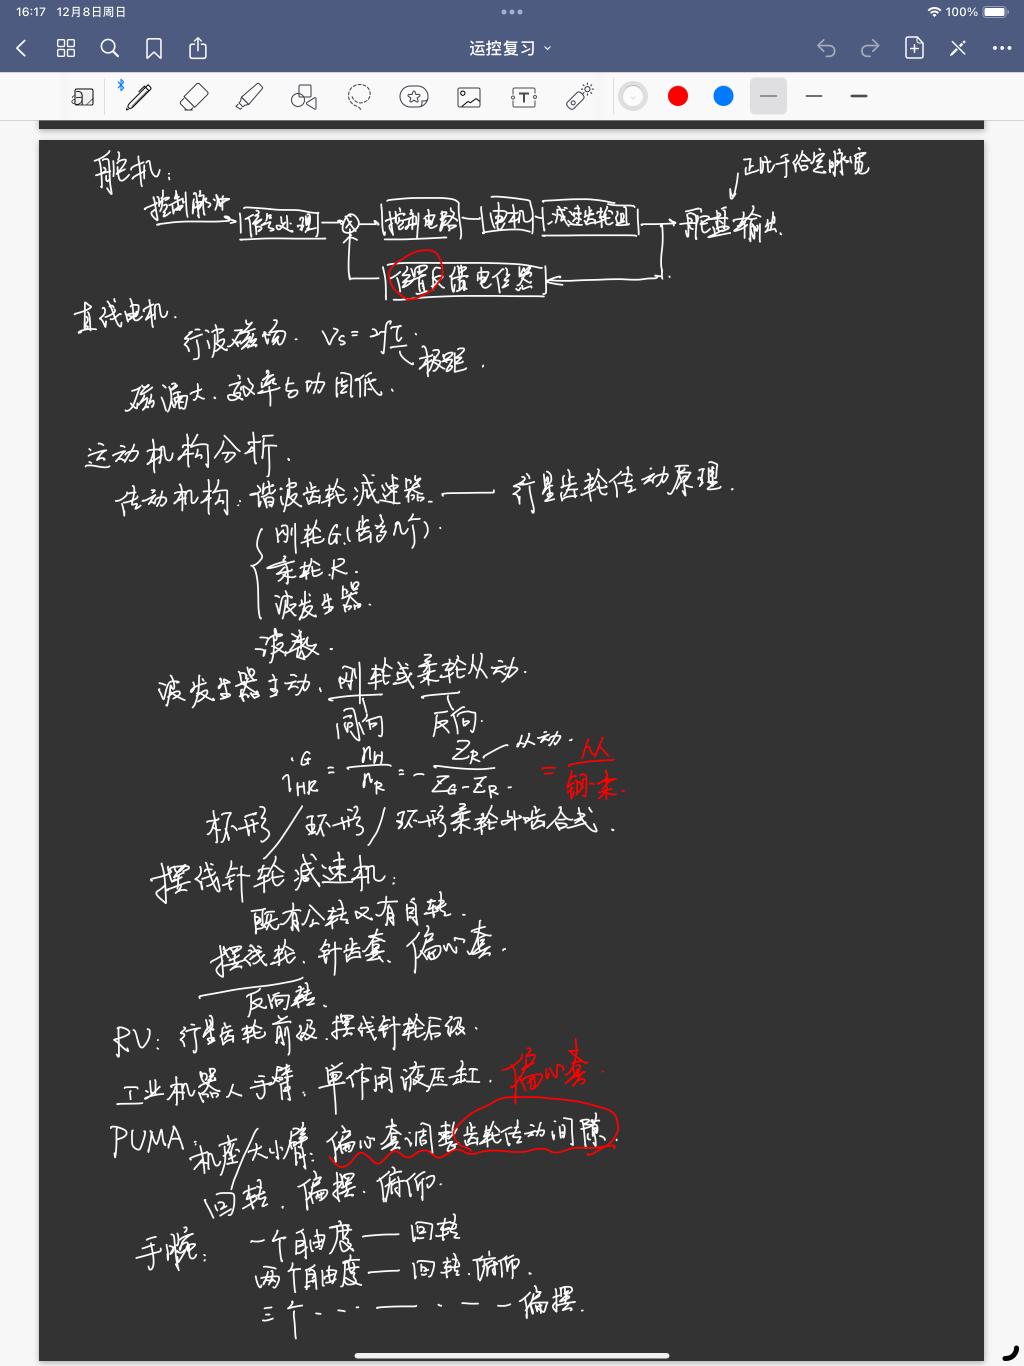 16:17 12月8日周日
100%
运控复习
舵机:
正比于给定脉宽
控制脉冲
信号处理 控制电路 电机 减速齿轮组 舵盘输出
位置反馈电位器
直线电机.
行波磁场. Vs=2fτ.
极距.
磁漏大.效率与功因低.
运动机构分析.
传动机构:谐波齿轮减速器.——行星齿轮传动原理.
刚轮G.(齿多几个).
柔轮.R.
波发生器.
波数.
波发生器主动、刚轮或柔轮从动.
同向 反向.
i^G_HR = n_H/n_R = - Z_R/(Z_G-Z_R). 从动. = 从/钢-柔.
杯形/环形/环形柔轮外啮合式.
摆线针轮减速机:
既有公转又有自转.
摆线轮、针齿套、偏心套.
反向转.
RV: 行星齿轮前级.摆线针轮后级.
工业机器人手臂:单作用液压缸. 偏心套.
PUMA:机座/大小臂:偏心套调整齿轮传动间隙.
回转、偏摆.俯仰.
手腕: 一个自由度——回转
两个自由度——回转.俯仰.
三个···——·——偏摆.